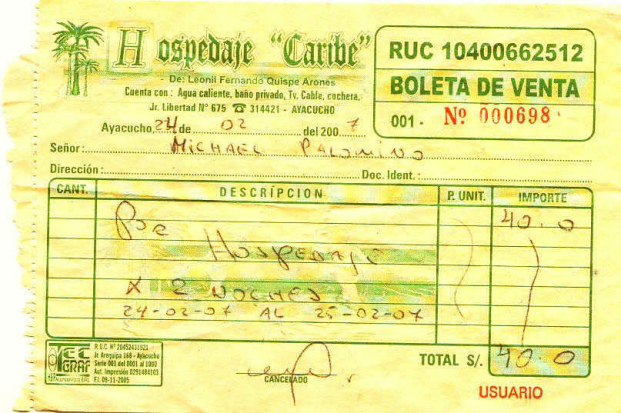 Hospedaje "Caribe"
- De: Leonil Fernando Quispe Arones
Cuenta con : Agua caliente, baño privado, Tv. Cable, cochera,
Jr. Libertad Nº 675 ☎ 314421 - AYACUCHO
RUC 10400662512
BOLETA DE VENTA
001 - Nº 000698
Ayacucho, 24 de 02 del 2007
Señor: MICHAEL PALOMINO
Dirección: Doc. Ident. :
CANT. DESCRÍPCION P. UNIT. IMPORTE
Por 40.0
HOSPEDAJE
X 2 NOCHES
24-02-07 AL 25-02-07
TEC GRAF
R.U.C. Nº
Jr. Arequipa 168 - Ayacucho
Serie 001 del 0001 al 1000
Aut. Impresión 0291484103
F.I. 09-11-2005
CANCELADO
TOTAL S/. 40.0
USUARIO